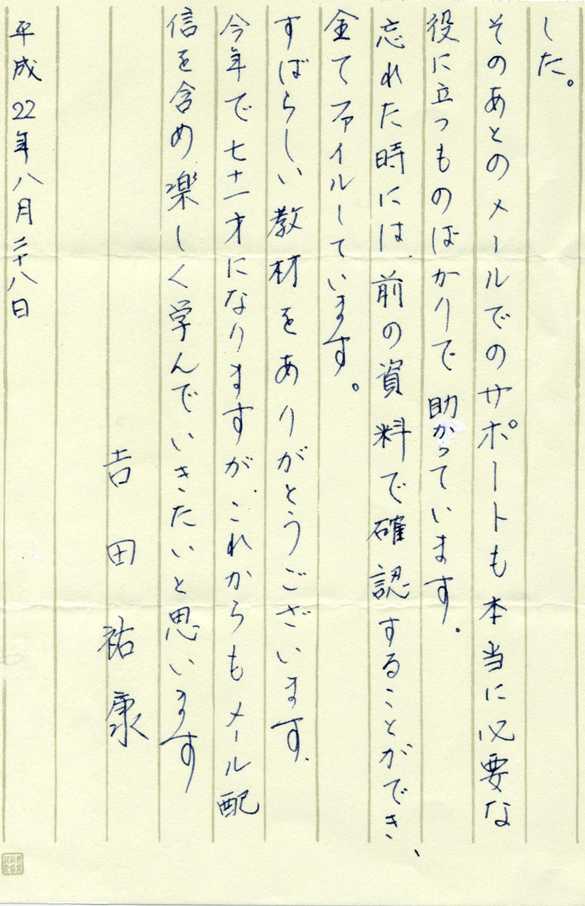 した。
そのあとのメールでのサポートも本当に必要な
役に立つものばかりで助かっています。
忘れた時には前の資料で確認することができ、
全てファイルしています。
すばらしい教材をありがとうございます。
今年で七十一才になりますがこれからもメール配
信を含め楽しく学んでいきたいと思います
吉田祐康
平成22年八月二十八日